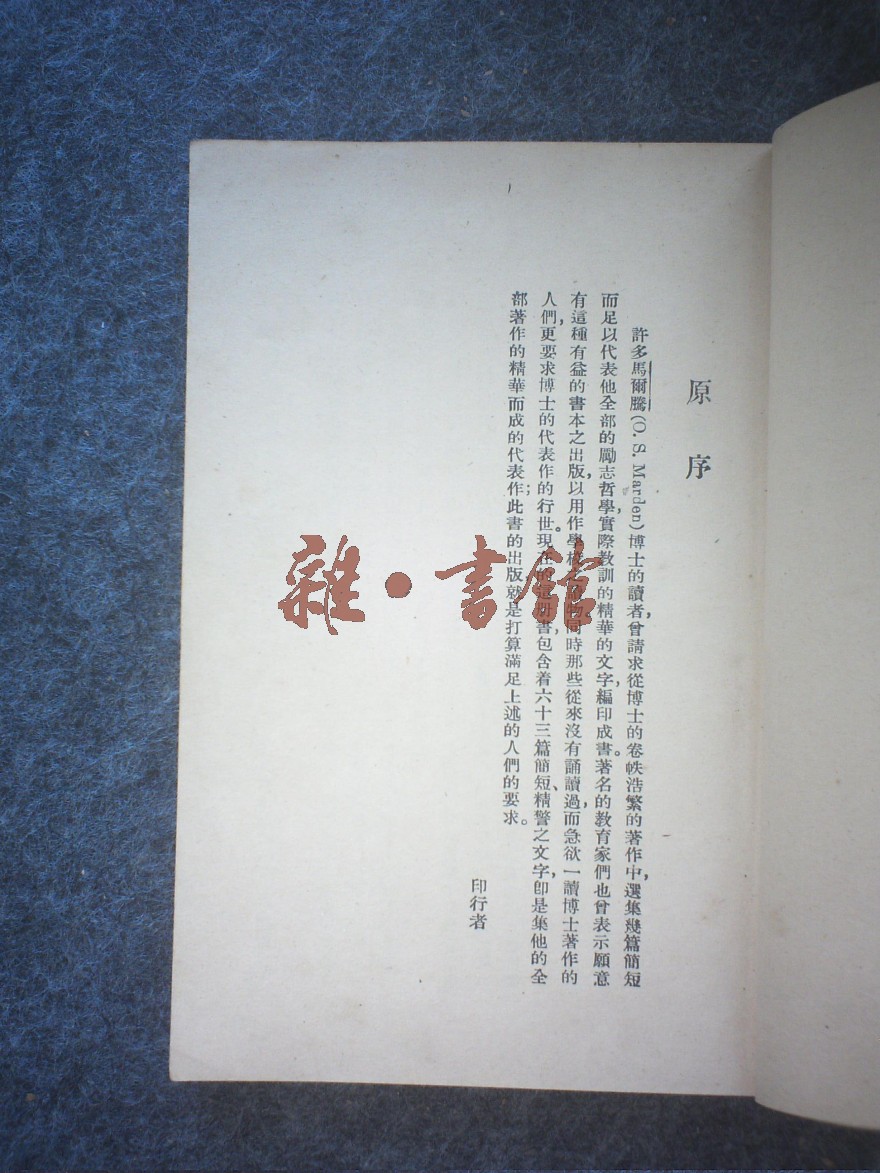 原序
許多馬爾騰(O. S. Marden)博士的讀者，曾請求從博士的卷帙浩繁的著作中，選集幾篇簡短
而足以代表他全部的勵志哲學，實際教訓的精華的文字，編印成書。著名的教育家們也曾表示願意
有這種有益的書本之出版，以用作學校同時那些從來沒有誦讀過，而急欲一讀博士著作的
人們，更要求博士的代表作的行世。現在書，包含着六十三篇簡短、精警之文字，卽是集他的全
部著作的精華而成的代表作；此書的出版就是打算滿足上述的人們的要求。
印行者
雜·書館